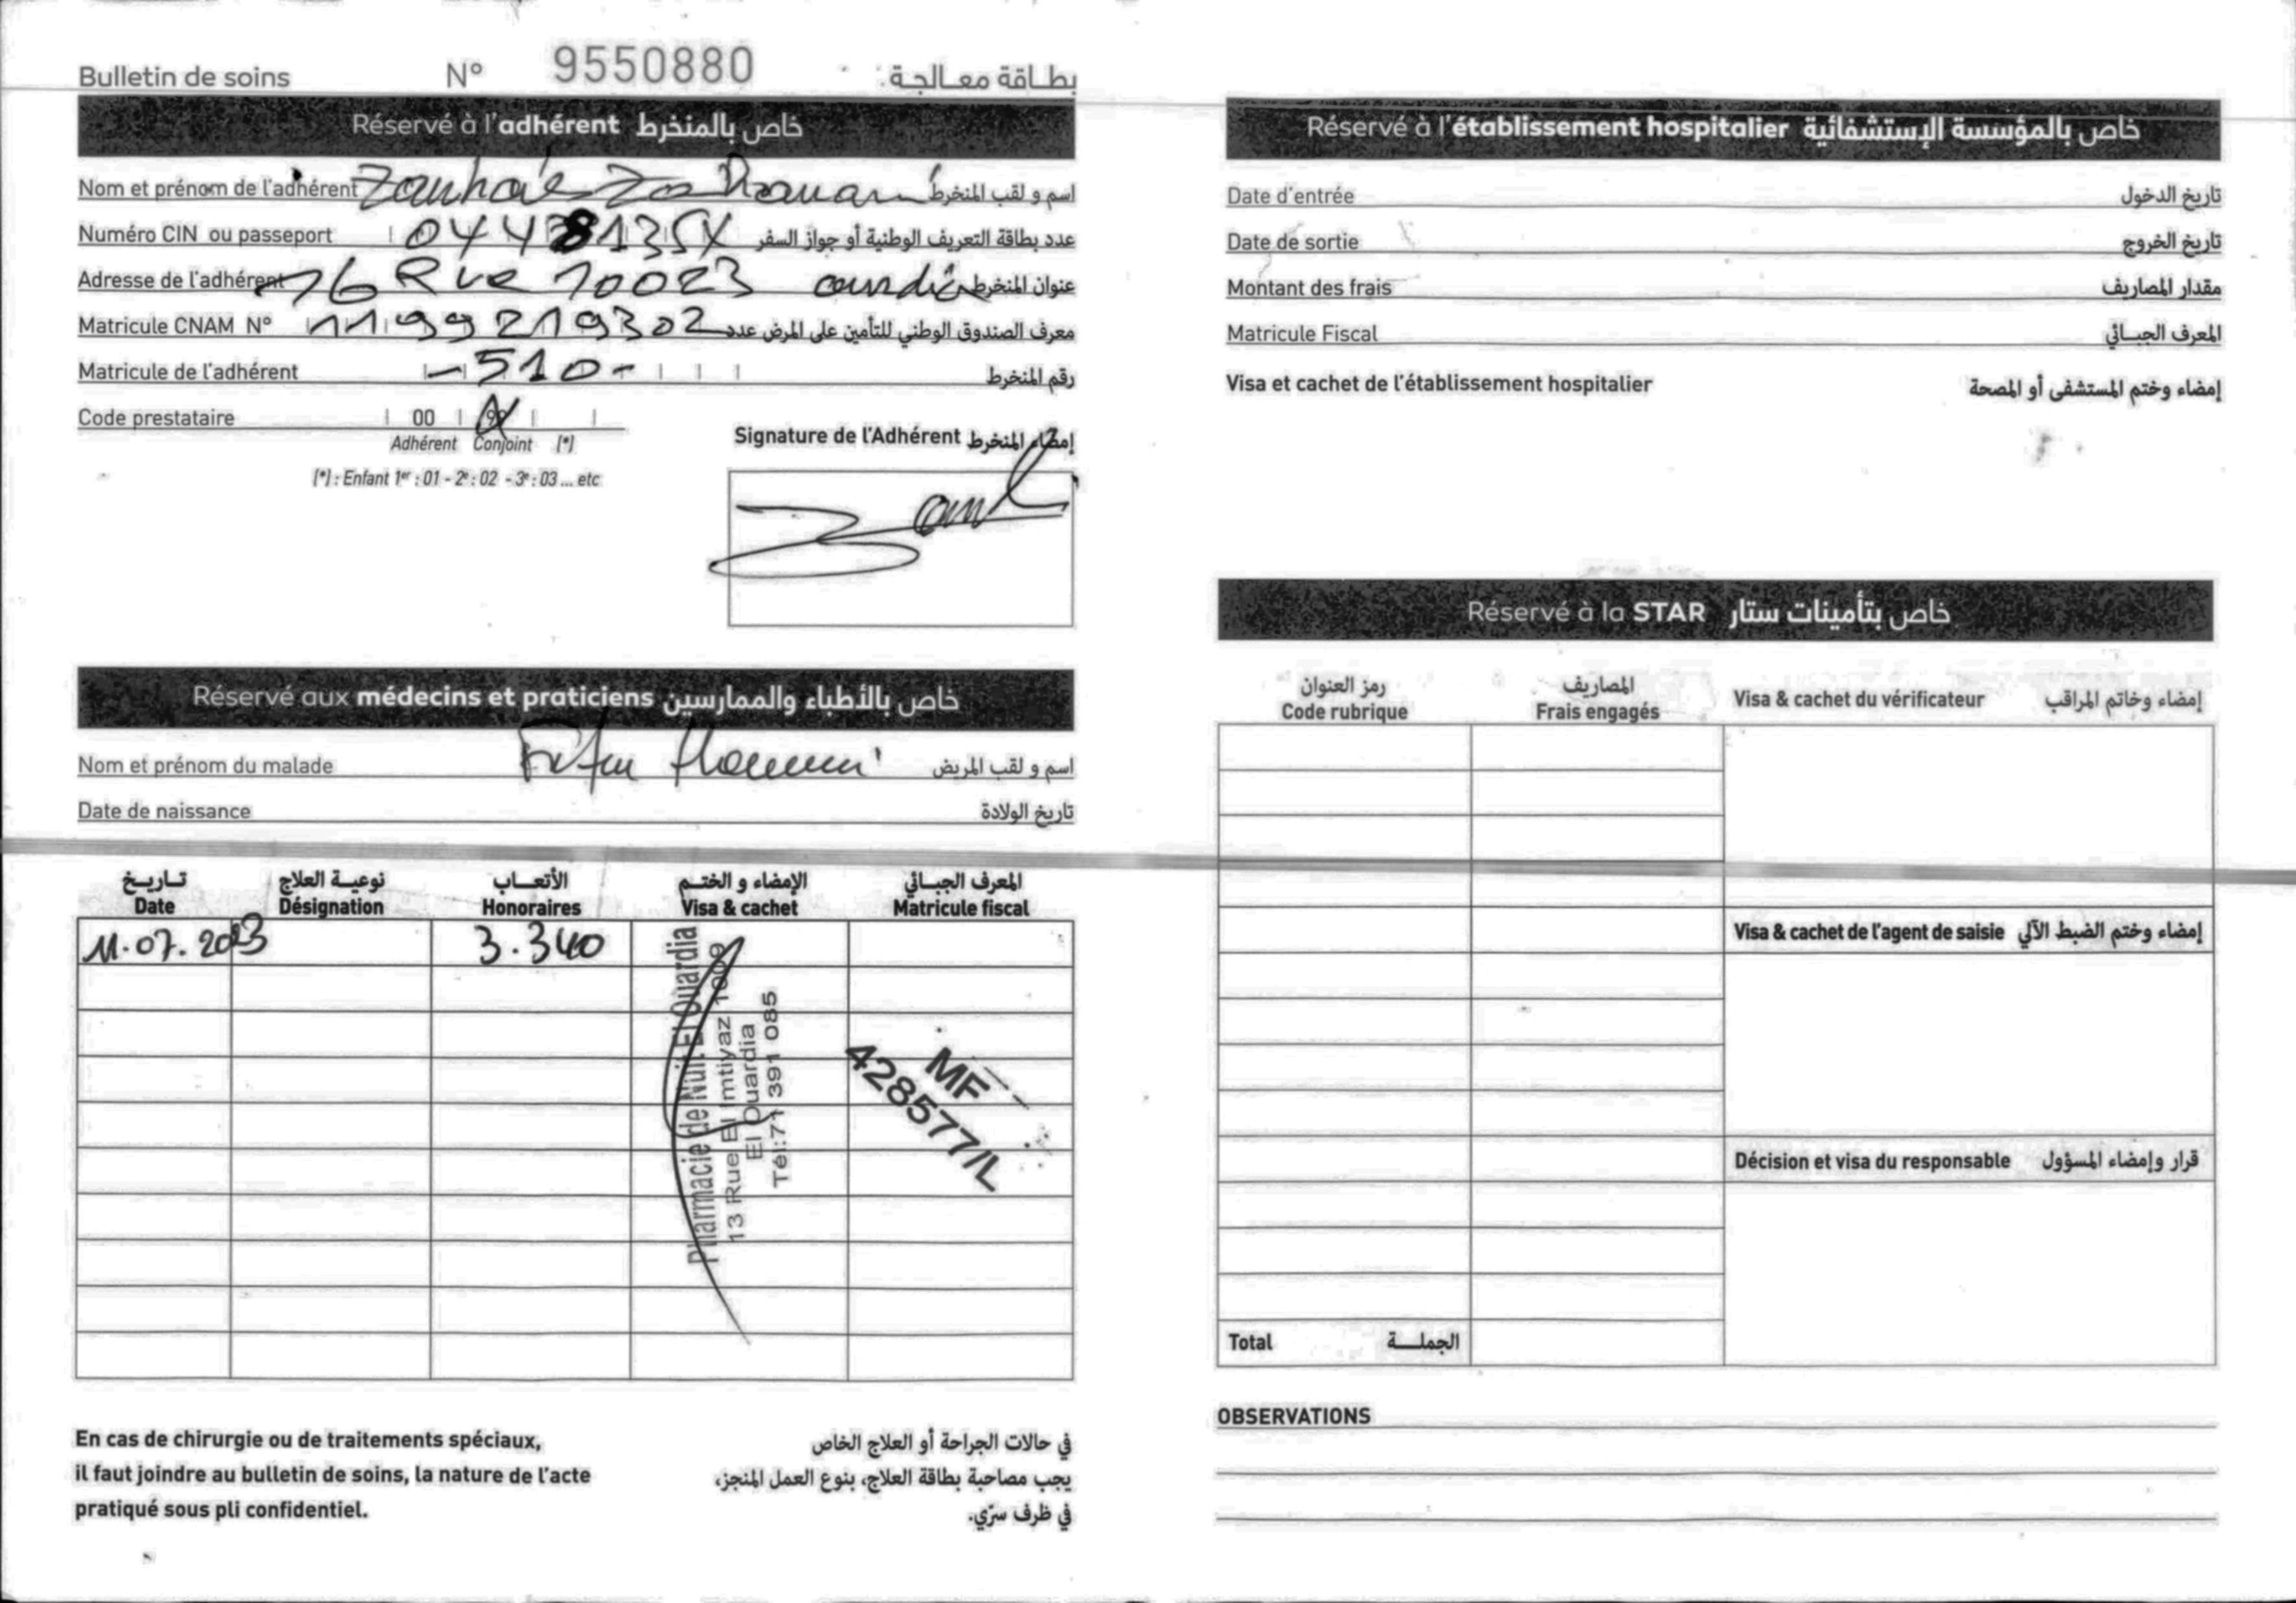 Bulletin de soins N° 9550880 بطاقة معالجة :
Réservé à l'adhérent خاص بالمنخرط
Nom et prénom de l'adhérent اسم و لقب المنخرط
Numéro CIN ou passeport عدد بطاقة التعريف الوطنية أو جواز السفر
Adresse de l'adhérent 76 Rue 10023 ourdia عنوان المنخرط
Matricule CNAM N° 11999219302 معرف الصندوق الوطني للتأمين على المرض عدد
Matricule de l'adhérent -510- رقم المنخرط
Code prestataire 00 99
Adhérent Conjoint (*)
(*) : Enfant 1er : 01 - 2e : 02 - 3e : 03 ... etc
Signature de l'Adhérent إمضاء المنخرط
Réservé aux médecins et praticiens خاص بالأطباء والممارسين
Nom et prénom du malade اسم و لقب المريض
Date de naissance تاريخ الولادة
تاريخ نوعية العلاج الأتعاب الإمضاء و الختم المعرف الجبائي
Date Désignation Honoraires Visa & cachet Matricule fiscal
11.07.2023 3.340
Pharmacie de Nuit El Ouardia
13 Rue El Imtiyaz 1009
El Ouardia
Tél:71 391 085
MF
428577/L
En cas de chirurgie ou de traitements spéciaux,
il faut joindre au bulletin de soins, la nature de l'acte
pratiqué sous pli confidentiel.
في حالات الجراحة أو العلاج الخاص
يجب مصاحبة بطاقة العلاج، بنوع العمل المنجز،
في ظرف سرّي.
Réservé à l'établissement hospitalier خاص بالمؤسسة الإستشفائية
Date d'entrée تاريخ الدخول
Date de sortie تاريخ الخروج
Montant des frais مقدار المصاريف
Matricule Fiscal المعرف الجبائي
Visa et cachet de l'établissement hospitalier إمضاء وختم المستشفى أو المصحة
Réservé à la STAR خاص بتأمينات ستار
رمز العنوان المصاريف
Code rubrique Frais engagés Visa & cachet du vérificateur إمضاء وخاتم المراقب
Visa & cachet de l'agent de saisie إمضاء وختم الضبط الآلي
Décision et visa du responsable قرار وإمضاء المسؤول
Total الجملة
OBSERVATIONS